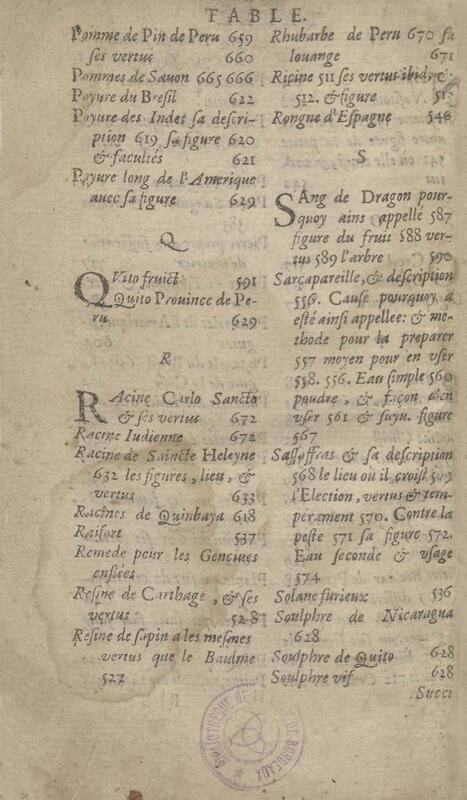 TABLE.
Pomme de Pin de Peru 659
ses vertus 660
Pommes de Sauon 665 666
Poyure du Bresil 622
Poyure des Indes sa descri-
ption 619 sa figure 620
& facultés 621
Poyure long de l'Amerique
auec sa figure 629
Q
QVito fruict 591
Quito Prouince de Pe-
ru 629
R
RAcine Carlo Sancto
& ses vertus 672
Racine Indienne 672
Racine de Saincte Heleyne
632 les figures, lieu, &
vertus 633
Racines de Quinbaya 618
Raifort 537
Remede pour les Genciues
enflées
Resine de Carthage, & ses
vertus 528
Resine de sapin a les mesmes
vertus que le Baulme
527
Rhubarbe de Peru 670 sa
louange 671
Ricine 511 ses vertus ibid,
512. & figure
Rongne d'Espagne 546
S
SAng de Dragon pour-
quoy ains appellé 587
figure du fruit 588 ver-
tus 589 l'arbre 590
Sarçapareille, & description
556. Cause pourquoy a
esté ainsi appellee: & me-
thode pour la preparer
557 moyen pour en vser
558. 556. Eau simple 560
poudre, & façon d'en
vser 561 & suyu. figure
567
Sassafras & sa description
568 le lieu où il croist 569
l'Election, vertus & tem-
perament 570. Contre la
peste 571 sa figure 572.
Eau seconde & vsage
574
Solane furieux 536
Soulphre de Nicaragua
628
Soulphre de Quito 628
Soulphre vif 628
Succi
BIBLIOTHEQUE DE LA VILLE DE BORDEAUX